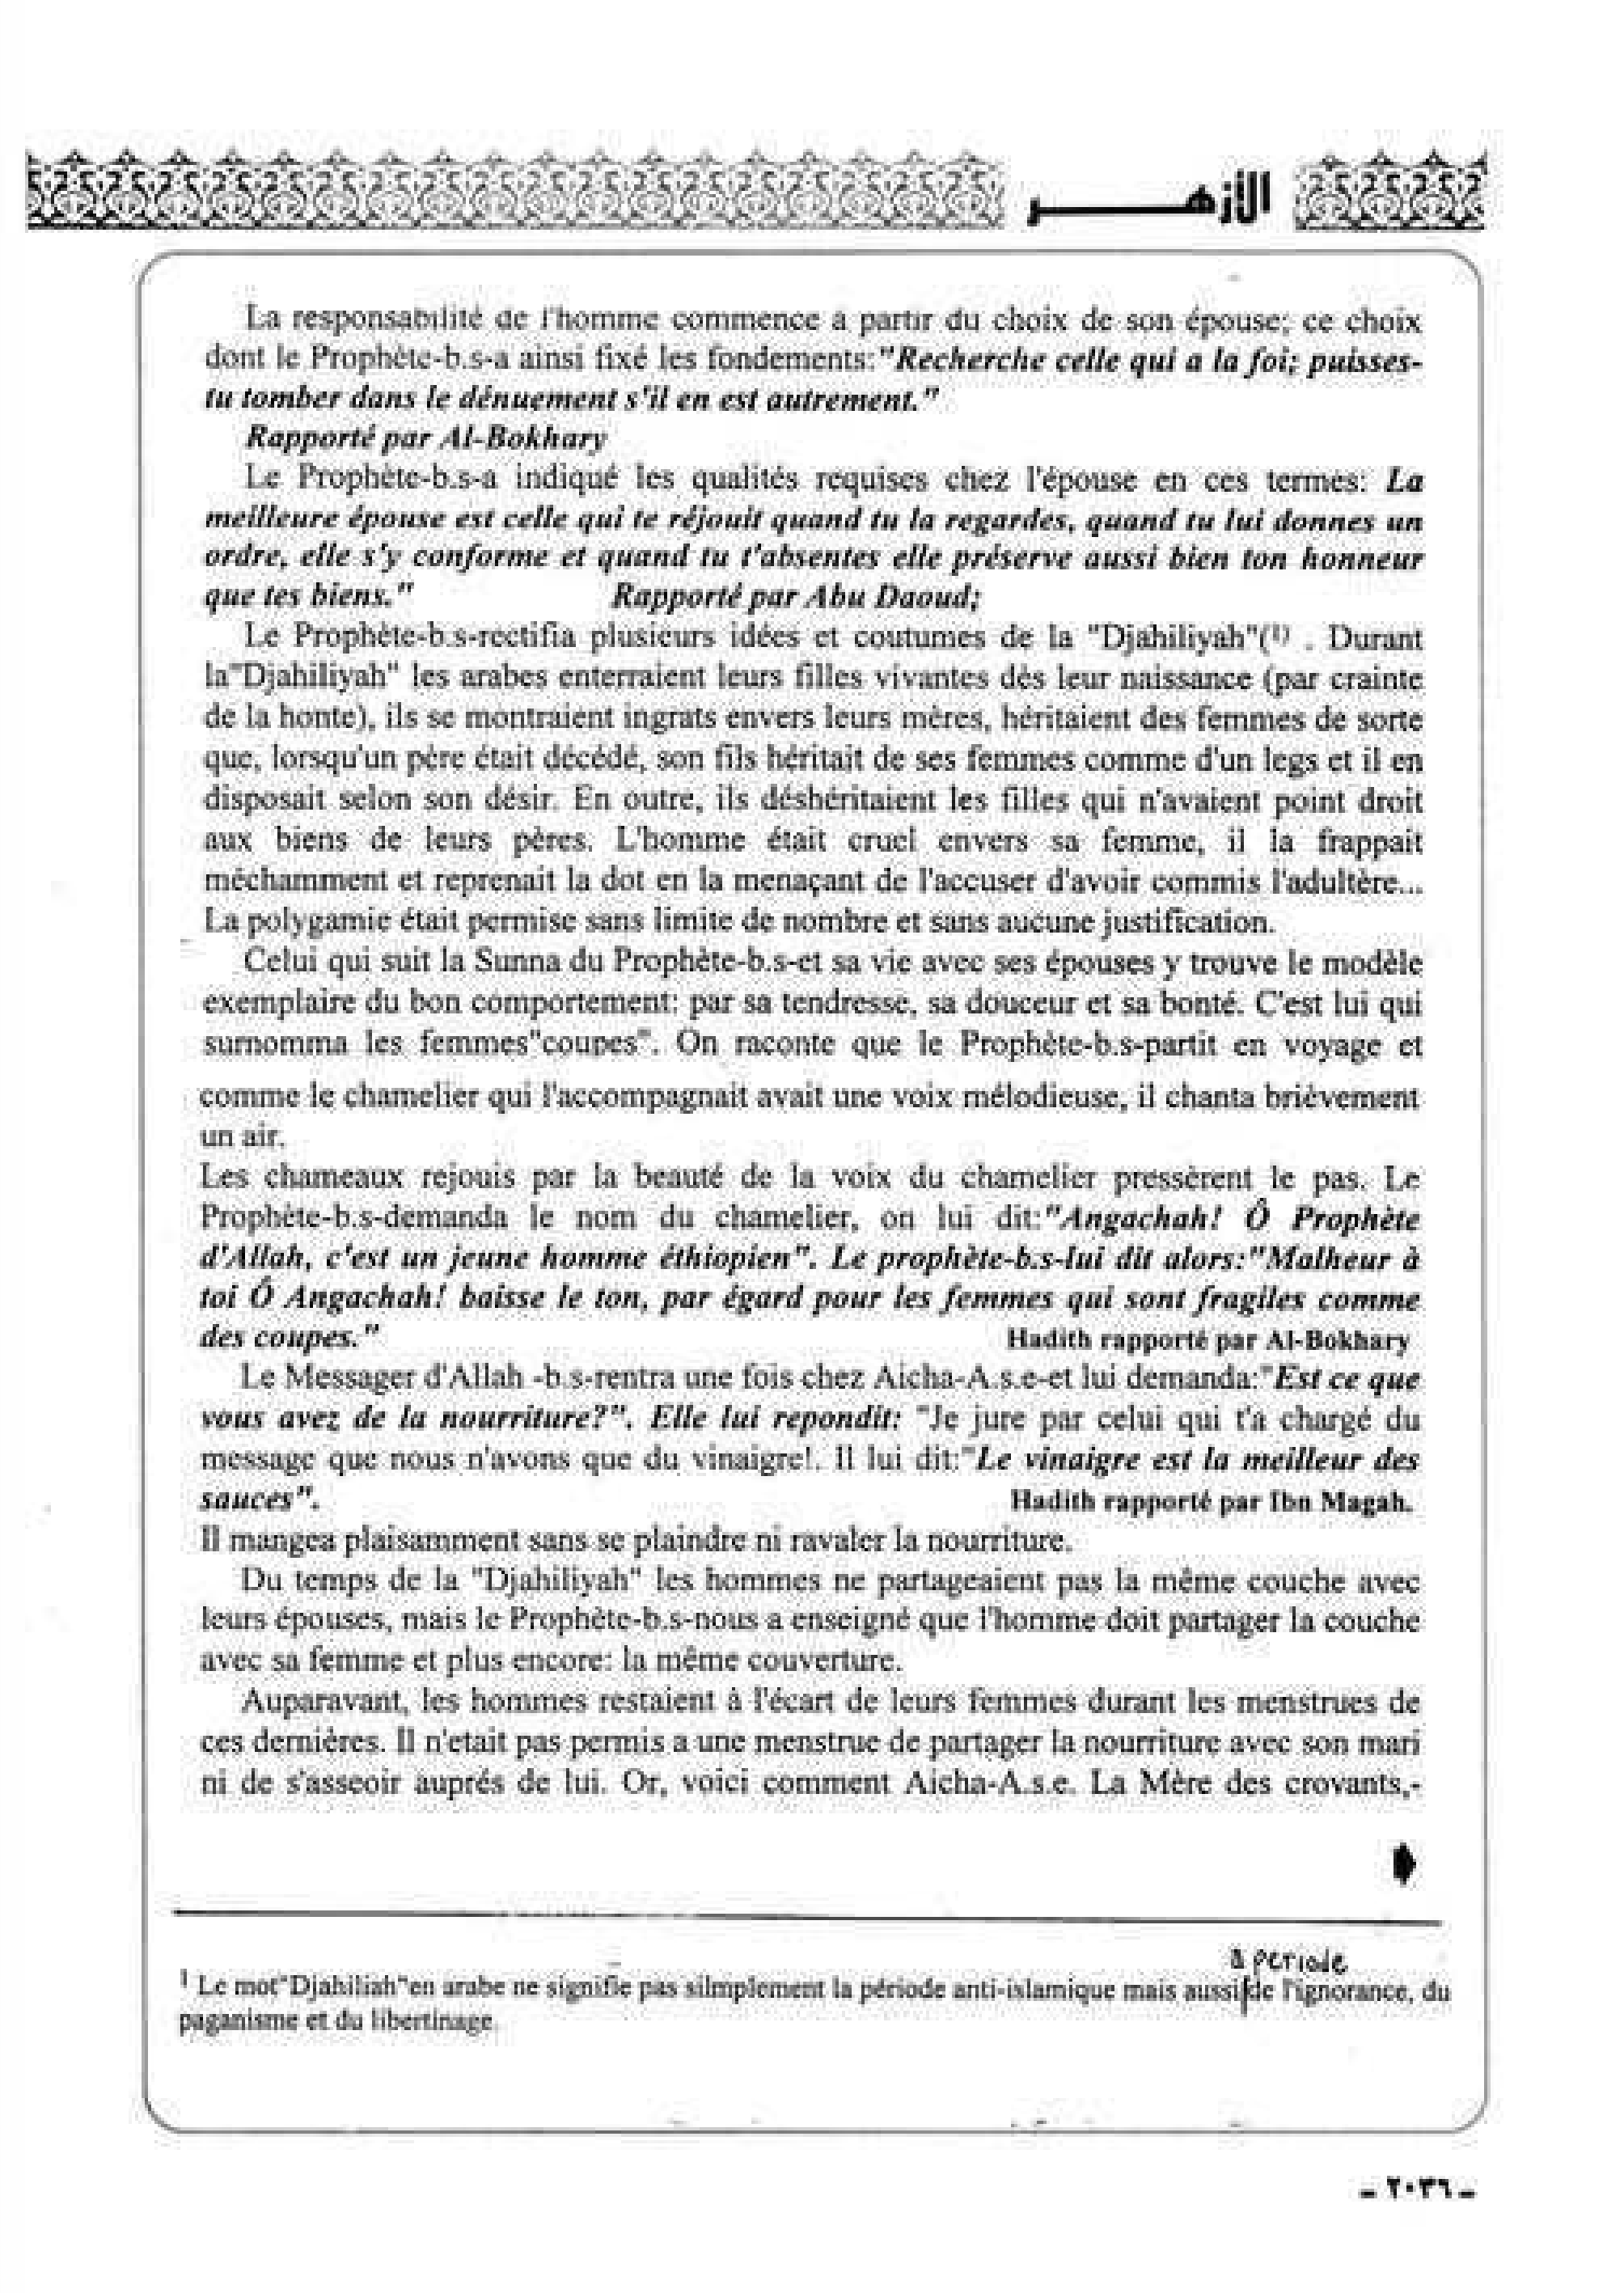 الأزهــر
La responsabilité de l'homme commence à partir du choix de son épouse; ce choix
dont le Prophète-b.s-a ainsi fixé les fondements:"Recherche celle qui a la foi; puisses-
tu tomber dans le dénuement s'il en est autrement."
Rapporté par Al-Bokhary
Le Prophète-b.s-a indiqué les qualités requises chez l'épouse en ces termes: La
meilleure épouse est celle qui te réjouit quand tu la regardes, quand tu lui donnes un
ordre, elle s'y conforme et quand tu t'absentes elle préserve aussi bien ton honneur
que tes biens." Rapporté par Abu Daoud;
Le Prophète-b.s-rectifia plusieurs idées et coutumes de la "Djahiliyah"(1) . Durant
la"Djahiliyah" les arabes enterraient leurs filles vivantes dès leur naissance (par crainte
de la honte), ils se montraient ingrats envers leurs mères, héritaient des femmes de sorte
que, lorsqu'un père était décédé, son fils héritait de ses femmes comme d'un legs et il en
disposait selon son désir. En outre, ils déshéritaient les filles qui n'avaient point droit
aux biens de leurs pères. L'homme était cruel envers sa femme, il la frappait
méchamment et reprenait la dot en la menaçant de l'accuser d'avoir commis l'adultère...
La polygamie était permise sans limite de nombre et sans aucune justification.
Celui qui suit la Sunna du Prophète-b.s-et sa vie avec ses épouses y trouve le modèle
exemplaire du bon comportement: par sa tendresse, sa douceur et sa bonté. C'est lui qui
surnomma les femmes"coupes". On raconte que le Prophète-b.s-partit en voyage et
comme le chamelier qui l'accompagnait avait une voix mélodieuse, il chanta brièvement
un air.
Les chameaux rejouis par la beauté de la voix du chamelier pressèrent le pas. Le
Prophète-b.s-demanda le nom du chamelier, on lui dit:"Angachah! Ô Prophète
d'Allah, c'est un jeune homme éthiopien". Le prophète-b.s-lui dit alors:"Malheur à
toi Ô Angachah! baisse le ton, par égard pour les femmes qui sont fragiles comme
des coupes." Hadith rapporté par Al-Bokhary
Le Messager d'Allah -b.s-rentra une fois chez Aicha-A.s.e-et lui demanda:"Est ce que
vous avez de la nourriture?". Elle lui repondit: "Je jure par celui qui t'a chargé du
message que nous n'avons que du vinaigre!. Il lui dit:"Le vinaigre est la meilleur des
sauces". Hadith rapporté par Ibn Magah.
Il mangea plaisamment sans se plaindre ni ravaler la nourriture.
Du temps de la "Djahiliyah" les hommes ne partageaient pas la même couche avec
leurs épouses, mais le Prophète-b.s-nous a enseigné que l'homme doit partager la couche
avec sa femme et plus encore: la même couverture.
Auparavant, les hommes restaient à l'écart de leurs femmes durant les menstrues de
ces dernières. Il n'etait pas permis a une menstrue de partager la nourriture avec son mari
ni de s'asseoir auprés de lui. Or, voici comment Aicha-A.s.e. La Mère des croyants,-
à periode
1 Le mot"Djahiliah"en arabe ne signifie pas silmplement la période anti-islamique mais aussi de l'ignorance, du
paganisme et du libertinage.
- ٢٠٣٦ -